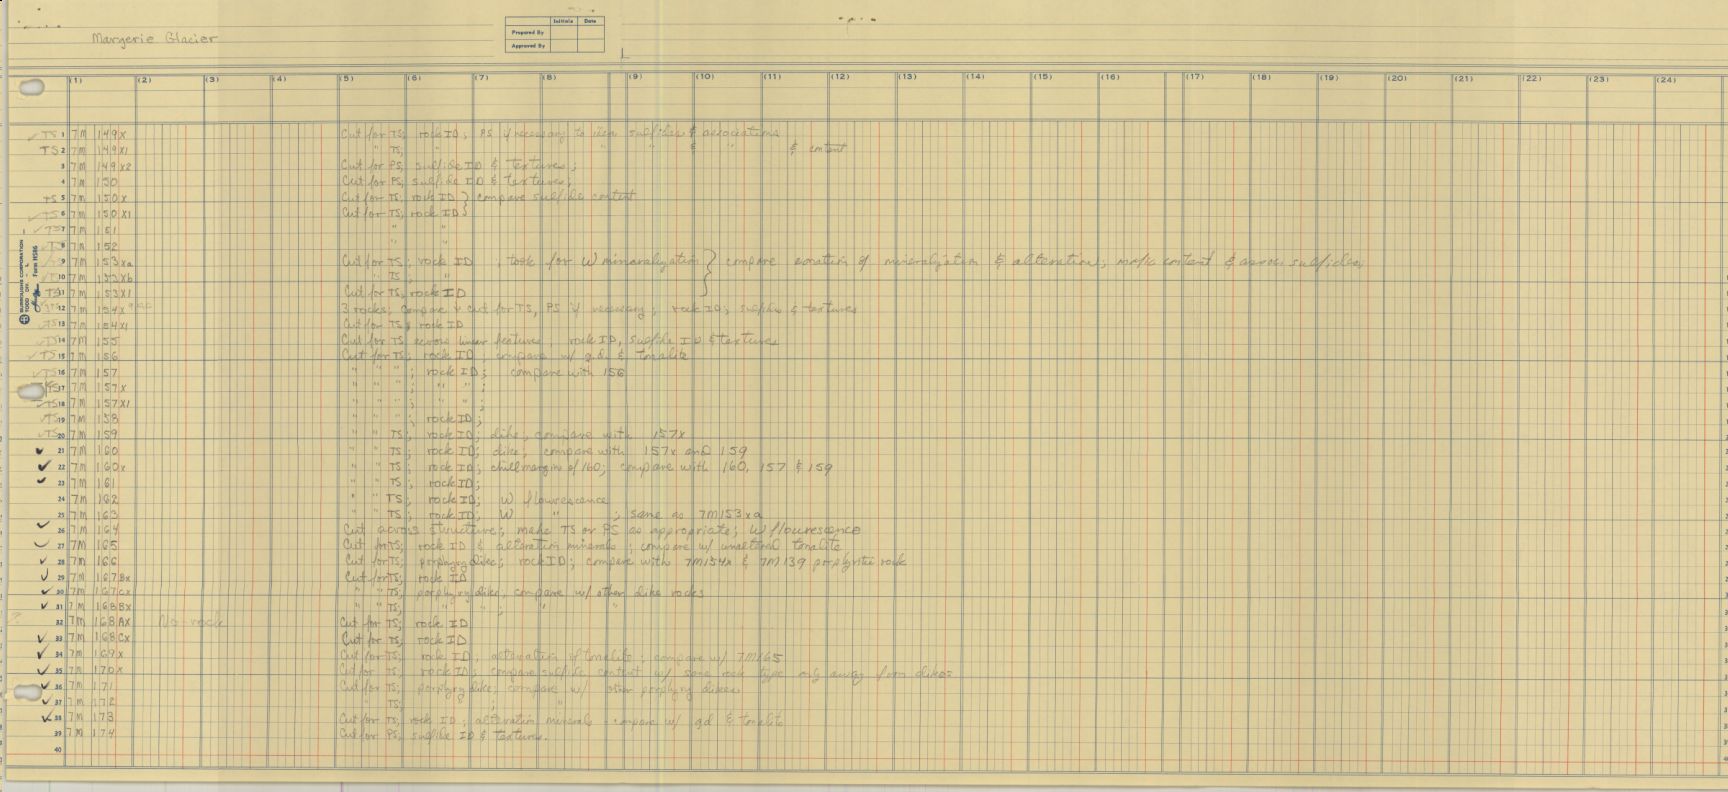 Margerie Glacier
Initials Date
Prepared By
Approved By
(1) (2) (3) (4) (5) (6) (7) (8) (9) (10) (11) (12) (13) (14) (15) (16) (17) (18) (19) (20) (21) (22) (23) (24)
TS 1 7M 149X Cut for TS; rock ID; PS if necessary to iden sulfides & associations
TS 2 7M 149X1 " TS; " " " & " & content
3 7M 149X2 Cut for PS; sulfide ID & textures;
4 7M 150 Cut for PS; sulfide ID & textures;
TS 5 7M 150X Cut for TS; rock ID } compare sulfide content
TS 6 7M 150X1 Cut for TS; rock ID }
TS 7 7M 151 " "
TS 8 7M 152 " "
9 7M 153Xa Cut for TS; rock ID ; took for W mineralization } compare zonation of mineralization & alteration; mafic content & assoc sulfides
TS 10 7M 153Xb " TS; "
TS 11 7M 153X1 Cut for TS; rock ID
12 7M 154X 3 rocks; compare & cut for TS, PS if necessary; rock ID; sulfides & textures
TS 13 7M 154X1 Cut for TS; rock ID
TS 14 7M 155 Cut for TS across linear features; rock ID, sulfide ID & textures
TS 15 7M 156 Cut for TS; rock ID; compare w/ g.d. & tonalite
TS 16 7M 157 " " " ; rock ID; compare with 156
TS 17 7M 157X " " " ; " " ;
TS 18 7M 157X1 " " " ; " " ;
TS 19 7M 158 " " " ; rock ID;
TS 20 7M 159 " " TS; rock ID; dike, compare with 157X
21 7M 160 " " TS; rock ID; dike, compare with 157X and 159
22 7M 160X " " TS; rock ID; chill margin of 160; compare with 160, 157 & 159
23 7M 161 " " TS; rock ID;
24 7M 162 " " TS; rock ID; W flourescence
25 7M 163 " " TS; rock ID; W " ; same as 7M153Xa
26 7M 164 Cut across structure; make TS or PS as appropriate; W flourescence
27 7M 165 Cut for TS; rock ID & alteration minerals; compare w/ unaltered tonalite
28 7M 166 Cut for TS; porphyry dike; rock ID; compare with 7M154X & 7M139 porphyritic rock
29 7M 167BX Cut for TS; rock ID
30 7M 167CX " " TS; porphyry dike, compare w/ other dike rocks
31 7M 168BX " " TS; " " ; " "
? 32 7M 168AX No rock Cut for TS; rock ID
33 7M 168CX Cut for TS; rock ID
34 7M 169X Cut for TS; rock ID; alteration of tonalite; compare w/ 7M165
35 7M 170X Cut for TS; rock ID; compare sulfide content w/ same rock type only away from dikes
36 7M 171 Cut for TS; porphyry dike; compare w/ other porphyry dikes
37 7M 172 " TS; " ; "
38 7M 173 Cut for TS; rock ID; alteration minerals - compare w/ gd & tonalite
39 7M 174 Cut for PS; sulfide ID & textures.
40
BURROUGHS CORPORATION
TODD
Form HS86